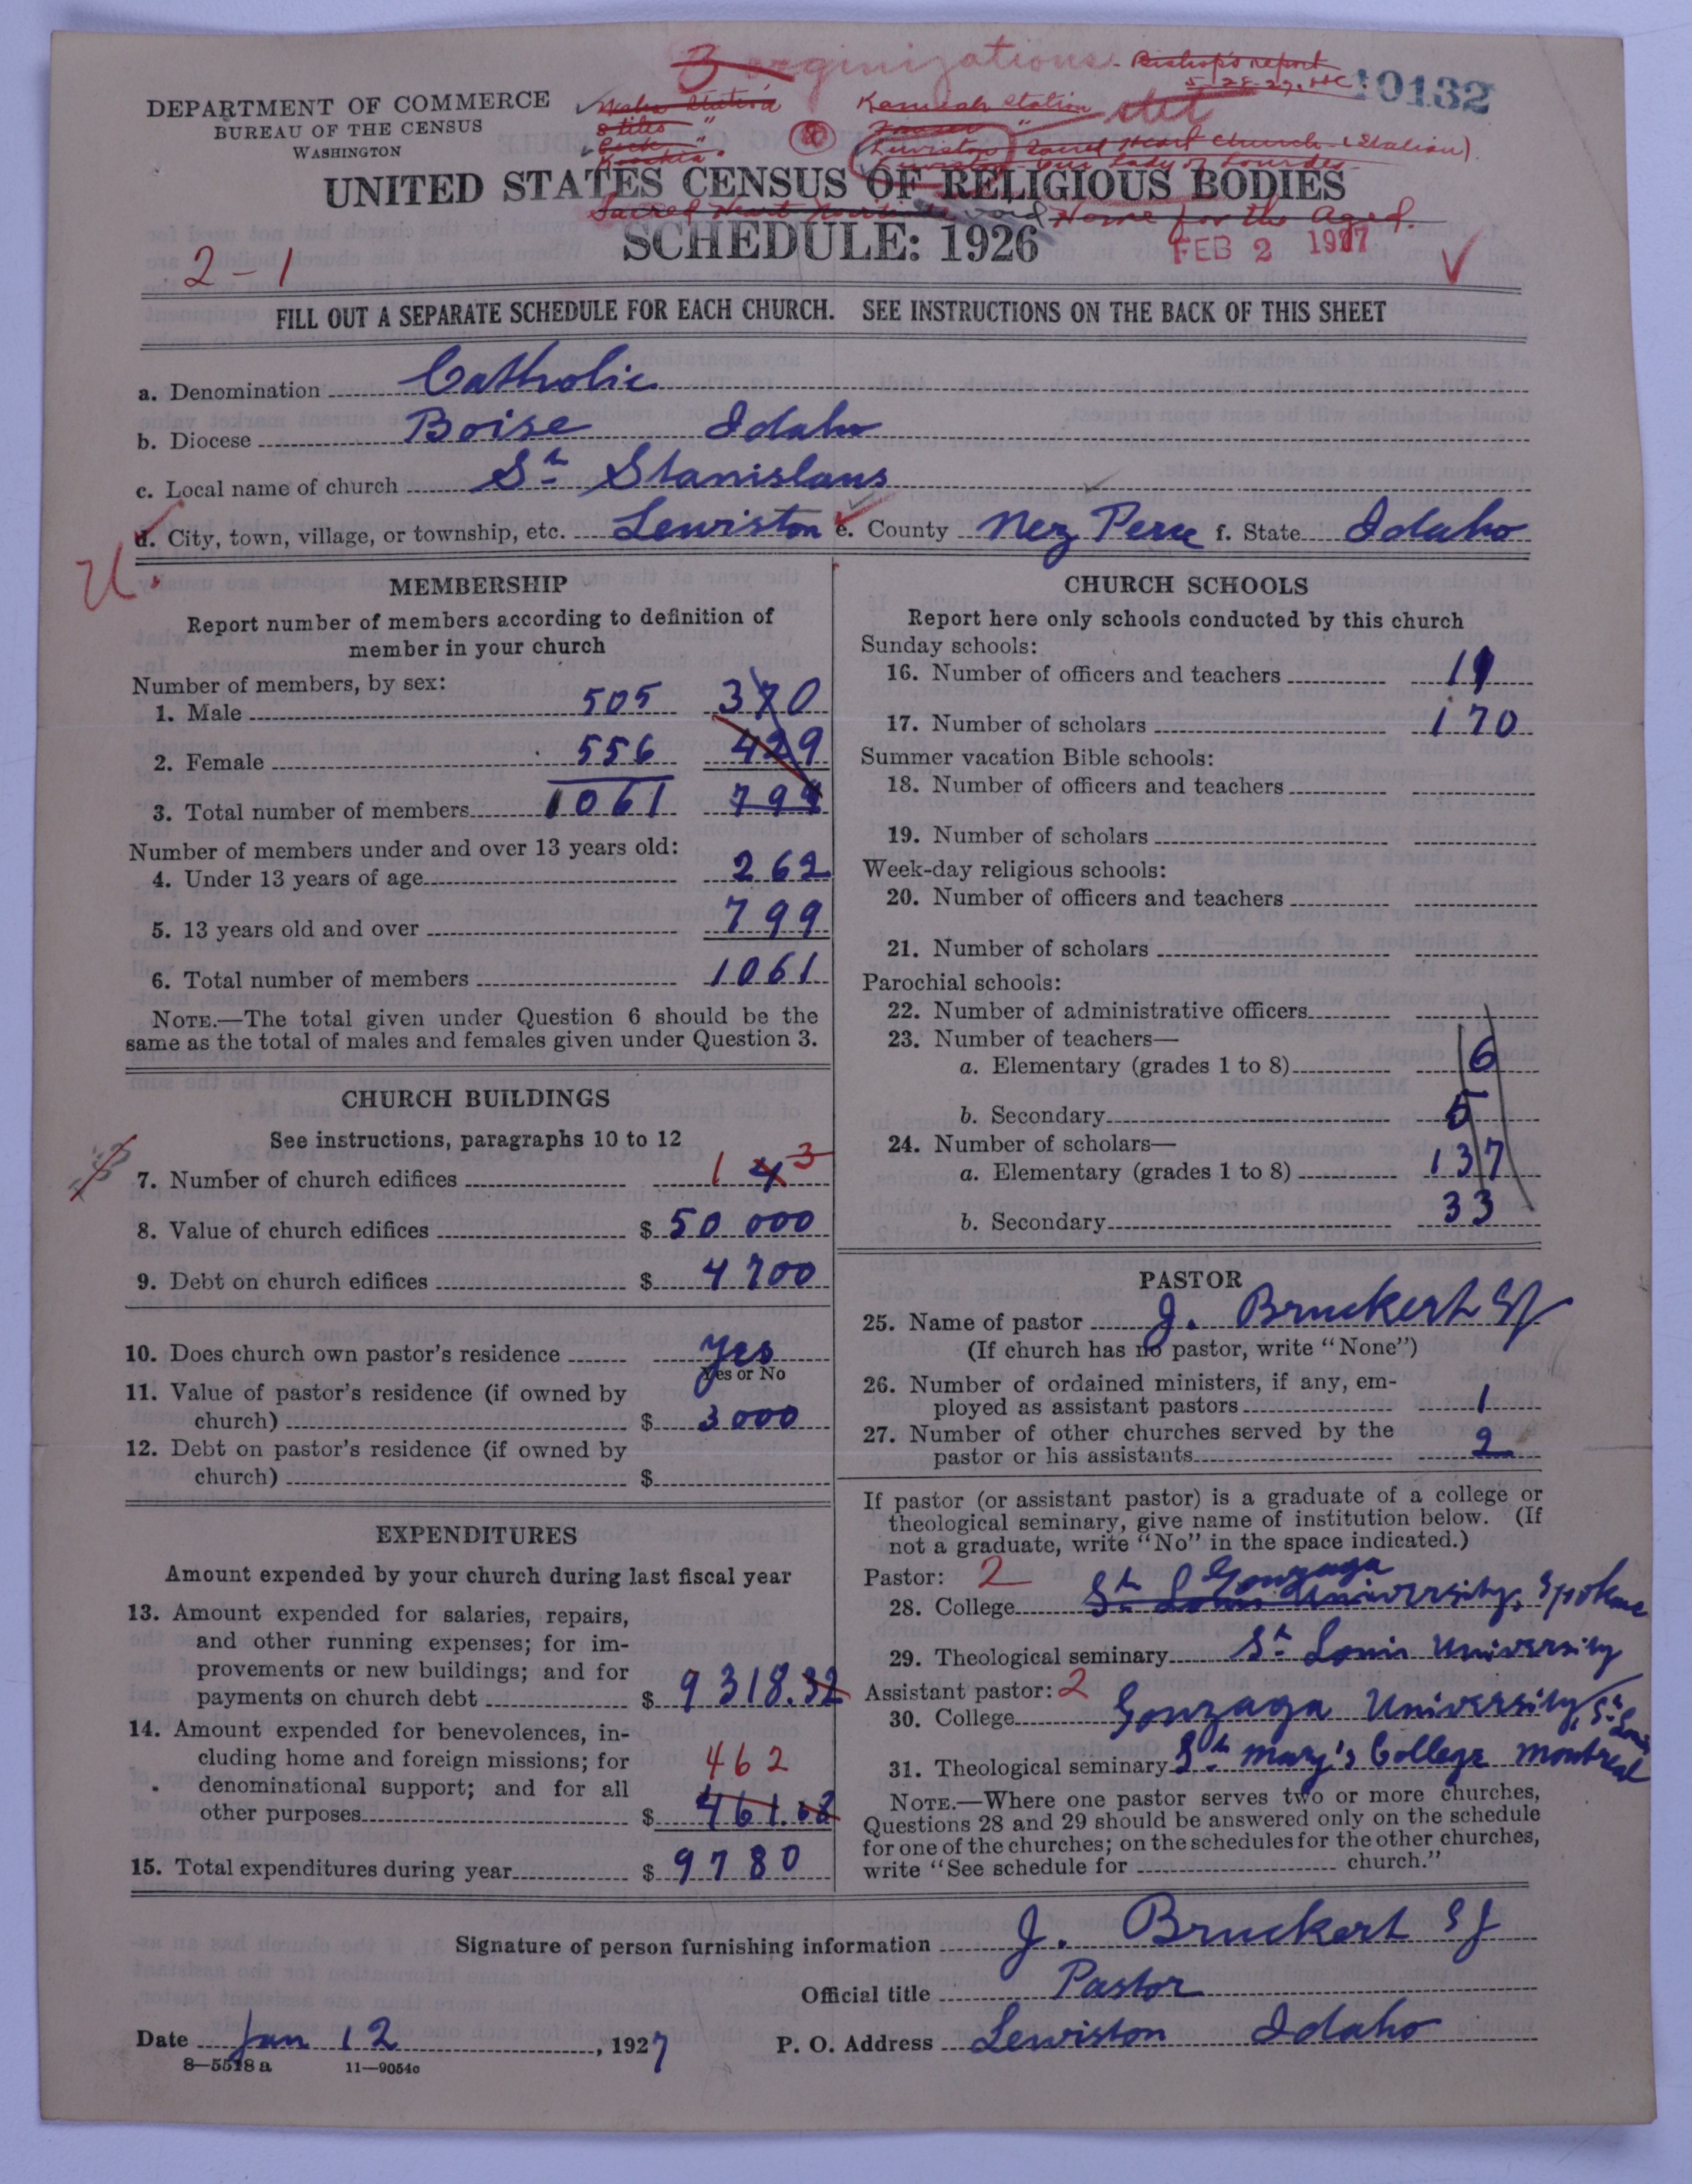 3 orginizations - Bishop's report
5-28-27. HC
10132
DEPARTMENT OF COMMERCE
BUREAU OF THE CENSUS
WASHINGTON
Stites "
Kamiah Station
Lewiston Sacred Heart Church (Station).
Lewiston Our Lady of Lourdes
UNITED STATES CENSUS OF RELIGIOUS BODIES
Sacred Heart and Home for the Aged.
SCHEDULE: 1926
FEB 2 1927
2 - 1
FILL OUT A SEPARATE SCHEDULE FOR EACH CHURCH. SEE INSTRUCTIONS ON THE BACK OF THIS SHEET
a. Denomination Catholic
b. Diocese Boise Idaho
c. Local name of church St Stanislaus
d. City, town, village, or township, etc. Lewiston e. County Nez Perce f. State Idaho
MEMBERSHIP
Report number of members according to definition of
member in your church
Number of members, by sex:
1. Male 505 370
2. Female 556 429
3. Total number of members 1061 799
Number of members under and over 13 years old:
4. Under 13 years of age 262
5. 13 years old and over 799
6. Total number of members 1061
NOTE.—The total given under Question 6 should be the
same as the total of males and females given under Question 3.
CHURCH BUILDINGS
See instructions, paragraphs 10 to 12
7. Number of church edifices 1 4 3
8. Value of church edifices $ 50 000
9. Debt on church edifices $ 4700
10. Does church own pastor's residence yes
Yes or No
11. Value of pastor's residence (if owned by
church) $ 3000
12. Debt on pastor's residence (if owned by
church) $
EXPENDITURES
Amount expended by your church during last fiscal year
13. Amount expended for salaries, repairs,
and other running expenses; for im-
provements or new buildings; and for
payments on church debt $ 9318.32
14. Amount expended for benevolences, in-
cluding home and foreign missions; for 462
denominational support; and for all
other purposes $ 461.68
15. Total expenditures during year $ 9780
CHURCH SCHOOLS
Report here only schools conducted by this church
Sunday schools:
16. Number of officers and teachers 11
17. Number of scholars 170
Summer vacation Bible schools:
18. Number of officers and teachers
19. Number of scholars
Week-day religious schools:
20. Number of officers and teachers
21. Number of scholars
Parochial schools:
22. Number of administrative officers
23. Number of teachers—
a. Elementary (grades 1 to 8) 6
b. Secondary 5
24. Number of scholars—
a. Elementary (grades 1 to 8) 137
b. Secondary 33
PASTOR
25. Name of pastor J. Bruckert SJ
(If church has no pastor, write "None")
26. Number of ordained ministers, if any, em-
ployed as assistant pastors 1
27. Number of other churches served by the
pastor or his assistants 2
If pastor (or assistant pastor) is a graduate of a college or
theological seminary, give name of institution below. (If
not a graduate, write "No" in the space indicated.)
Pastor: 2 Gonzaga
28. College St Louis University, Spokane
29. Theological seminary St Louis University
Assistant pastor: 2
30. College Gonzaga University, St Louis
31. Theological seminary St Mary's College Montreal
NOTE.—Where one pastor serves two or more churches,
Questions 28 and 29 should be answered only on the schedule
for one of the churches; on the schedules for the other churches,
write "See schedule for church."
Signature of person furnishing information J. Bruckert SJ
Official title Pastor
Date Jan 12, 1927 P. O. Address Lewiston Idaho
8—5518 a 11—9054c